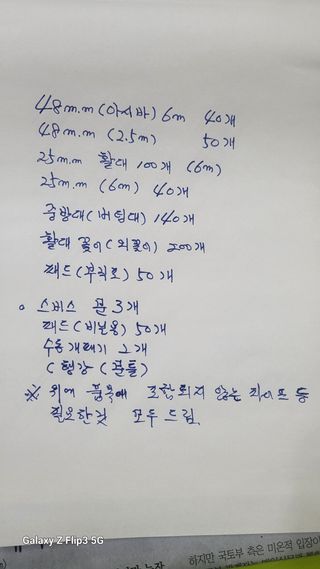 48m.m (아시바) 6m 40개
48m.m (2.5m) 50개
25m.m 활대 100개 (6m)
25m.m (6m) 40개
중방대 (버팀대) 140개
활대 꽂이 (외꽂이) 200개
패드 (부직포) 50개
스비스 문 3개
패드 (비본용) 50개
수동개폐기 2개
C형강 (문틀)
※ 위에 품목에 포함되지 않는 파이프 등
필요한것 모두 드림.
Galaxy Z Flip3 5G
하지만 국토부 측은 미온적 입장